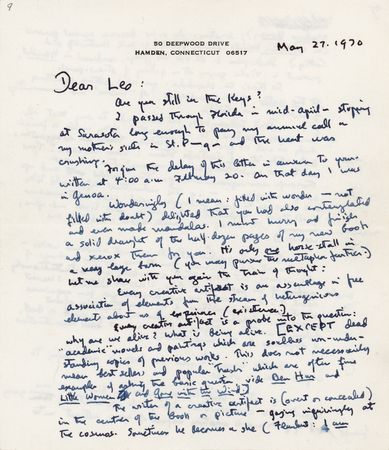 9
50 DEEPWOOD DRIVE
HAMDEN, CONNECTICUT 06517
May 27. 1970
Dear Leo:
Are you still in the Keys?
I passed through Florida in mid-april – stopping
at Sarasota long enough to pay my annual call on
my mother's sister in St. P–g– and the heat was
crushing.
Forgive the delay of this letter in answer to yours
written at 4:00 a.m. February 20. On that day I was
in Genoa.
Wonderingly (I mean: filled with wonder — not
filled with doubt) delighted that you had also contemplated
and even made mandalas. I must hurry and finish
a solid draught of the half-dozen pages of my new book
and xerox them for you. It's only one horse-stall in
a very large barn (you may pursue the metaphor further.)
Let me share with you again the train of thought:
Every creative artifact is an assemblage in free
association of elements from the stream of heterogeneous
element about us of experience (existence.)
Every creative artifact is a probe into the question:
why are we alive? what is being alive. [EXCEPT dead
"academic" novels and paintings which are soulless un-under-
standing copies of previous works. This does not necessarily
mean best-sellers and popular "trash" which are often fine
examples of asking the basic question, vide Ben Hur and
Little Women and Gone with the Wind]
The writer of a creative artifact is (overt or concealed)
in the center of the book or picture — gazing inquiringly at
the cosmos. Sometimes he becomes a she (Flaubert: I am